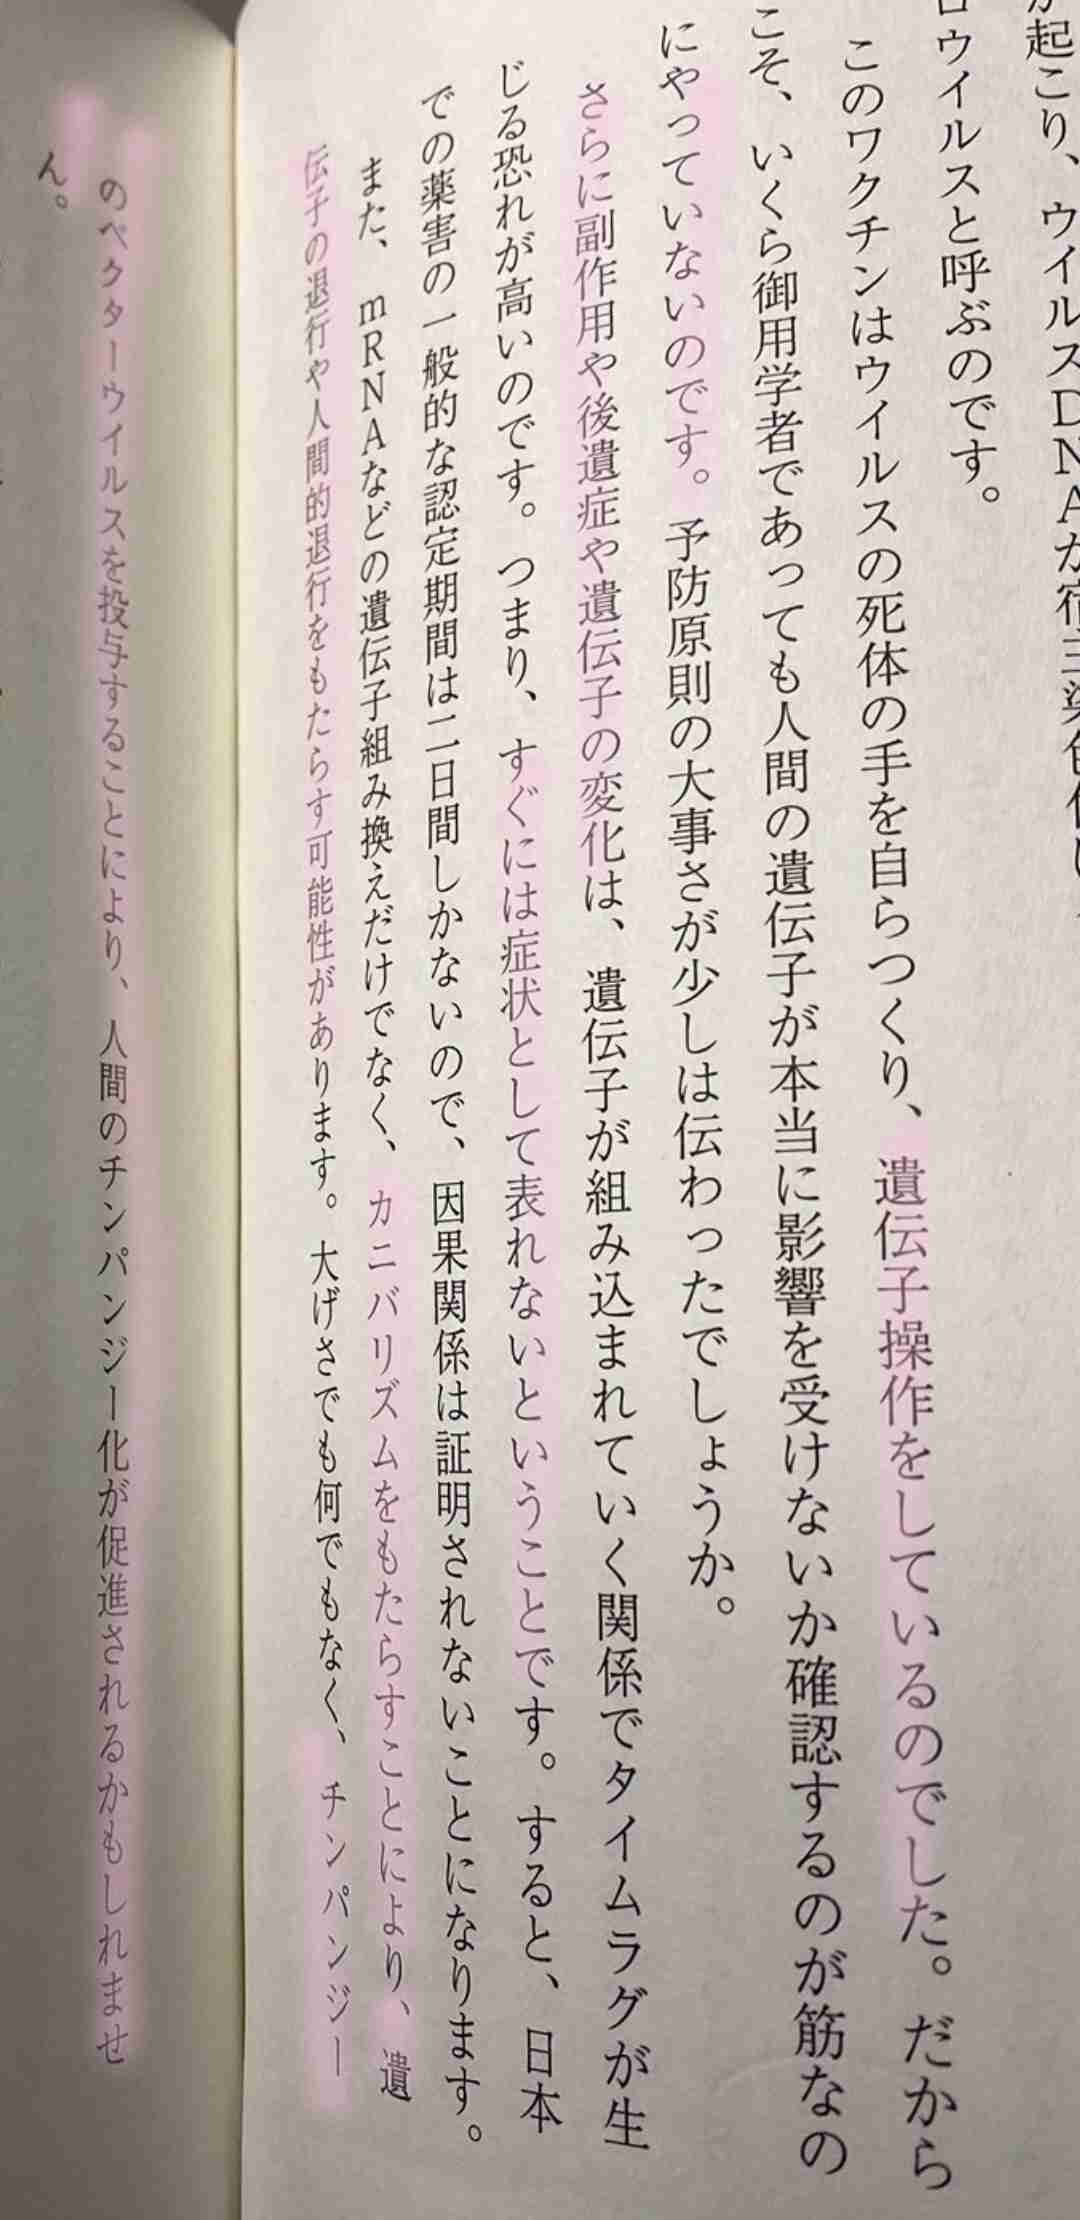 が起こり、ウイルスDNAが宿主染色体に
ロウイルスと呼ぶのです。
このワクチンはウイルスの死体の手を自らつくり、遺伝子操作をしているのでした。だから
こそ、いくら御用学者であっても人間の遺伝子が本当に影響を受けないか確認するのが筋なの
にやっていないのです。予防原則の大事さが少しは伝わったでしょうか。
さらに副作用や後遺症や遺伝子の変化は、遺伝子が組み込まれていく関係でタイムラグが生
じる恐れが高いのです。つまり、すぐには症状として表れないということです。すると、日本
での薬害の一般的な認定期間は二日間しかないので、因果関係は証明されないことになります。
また、mRNAなどの遺伝子組み換えだけでなく、カニバリズムをもたらすことにより、遺
伝子の退行や人間的退行をもたらす可能性があります。大げさでも何でもなく、チンパンジー
のベクターウイルスを投与することにより、人間のチンパンジー化が促進されるかもしれませ
ん。